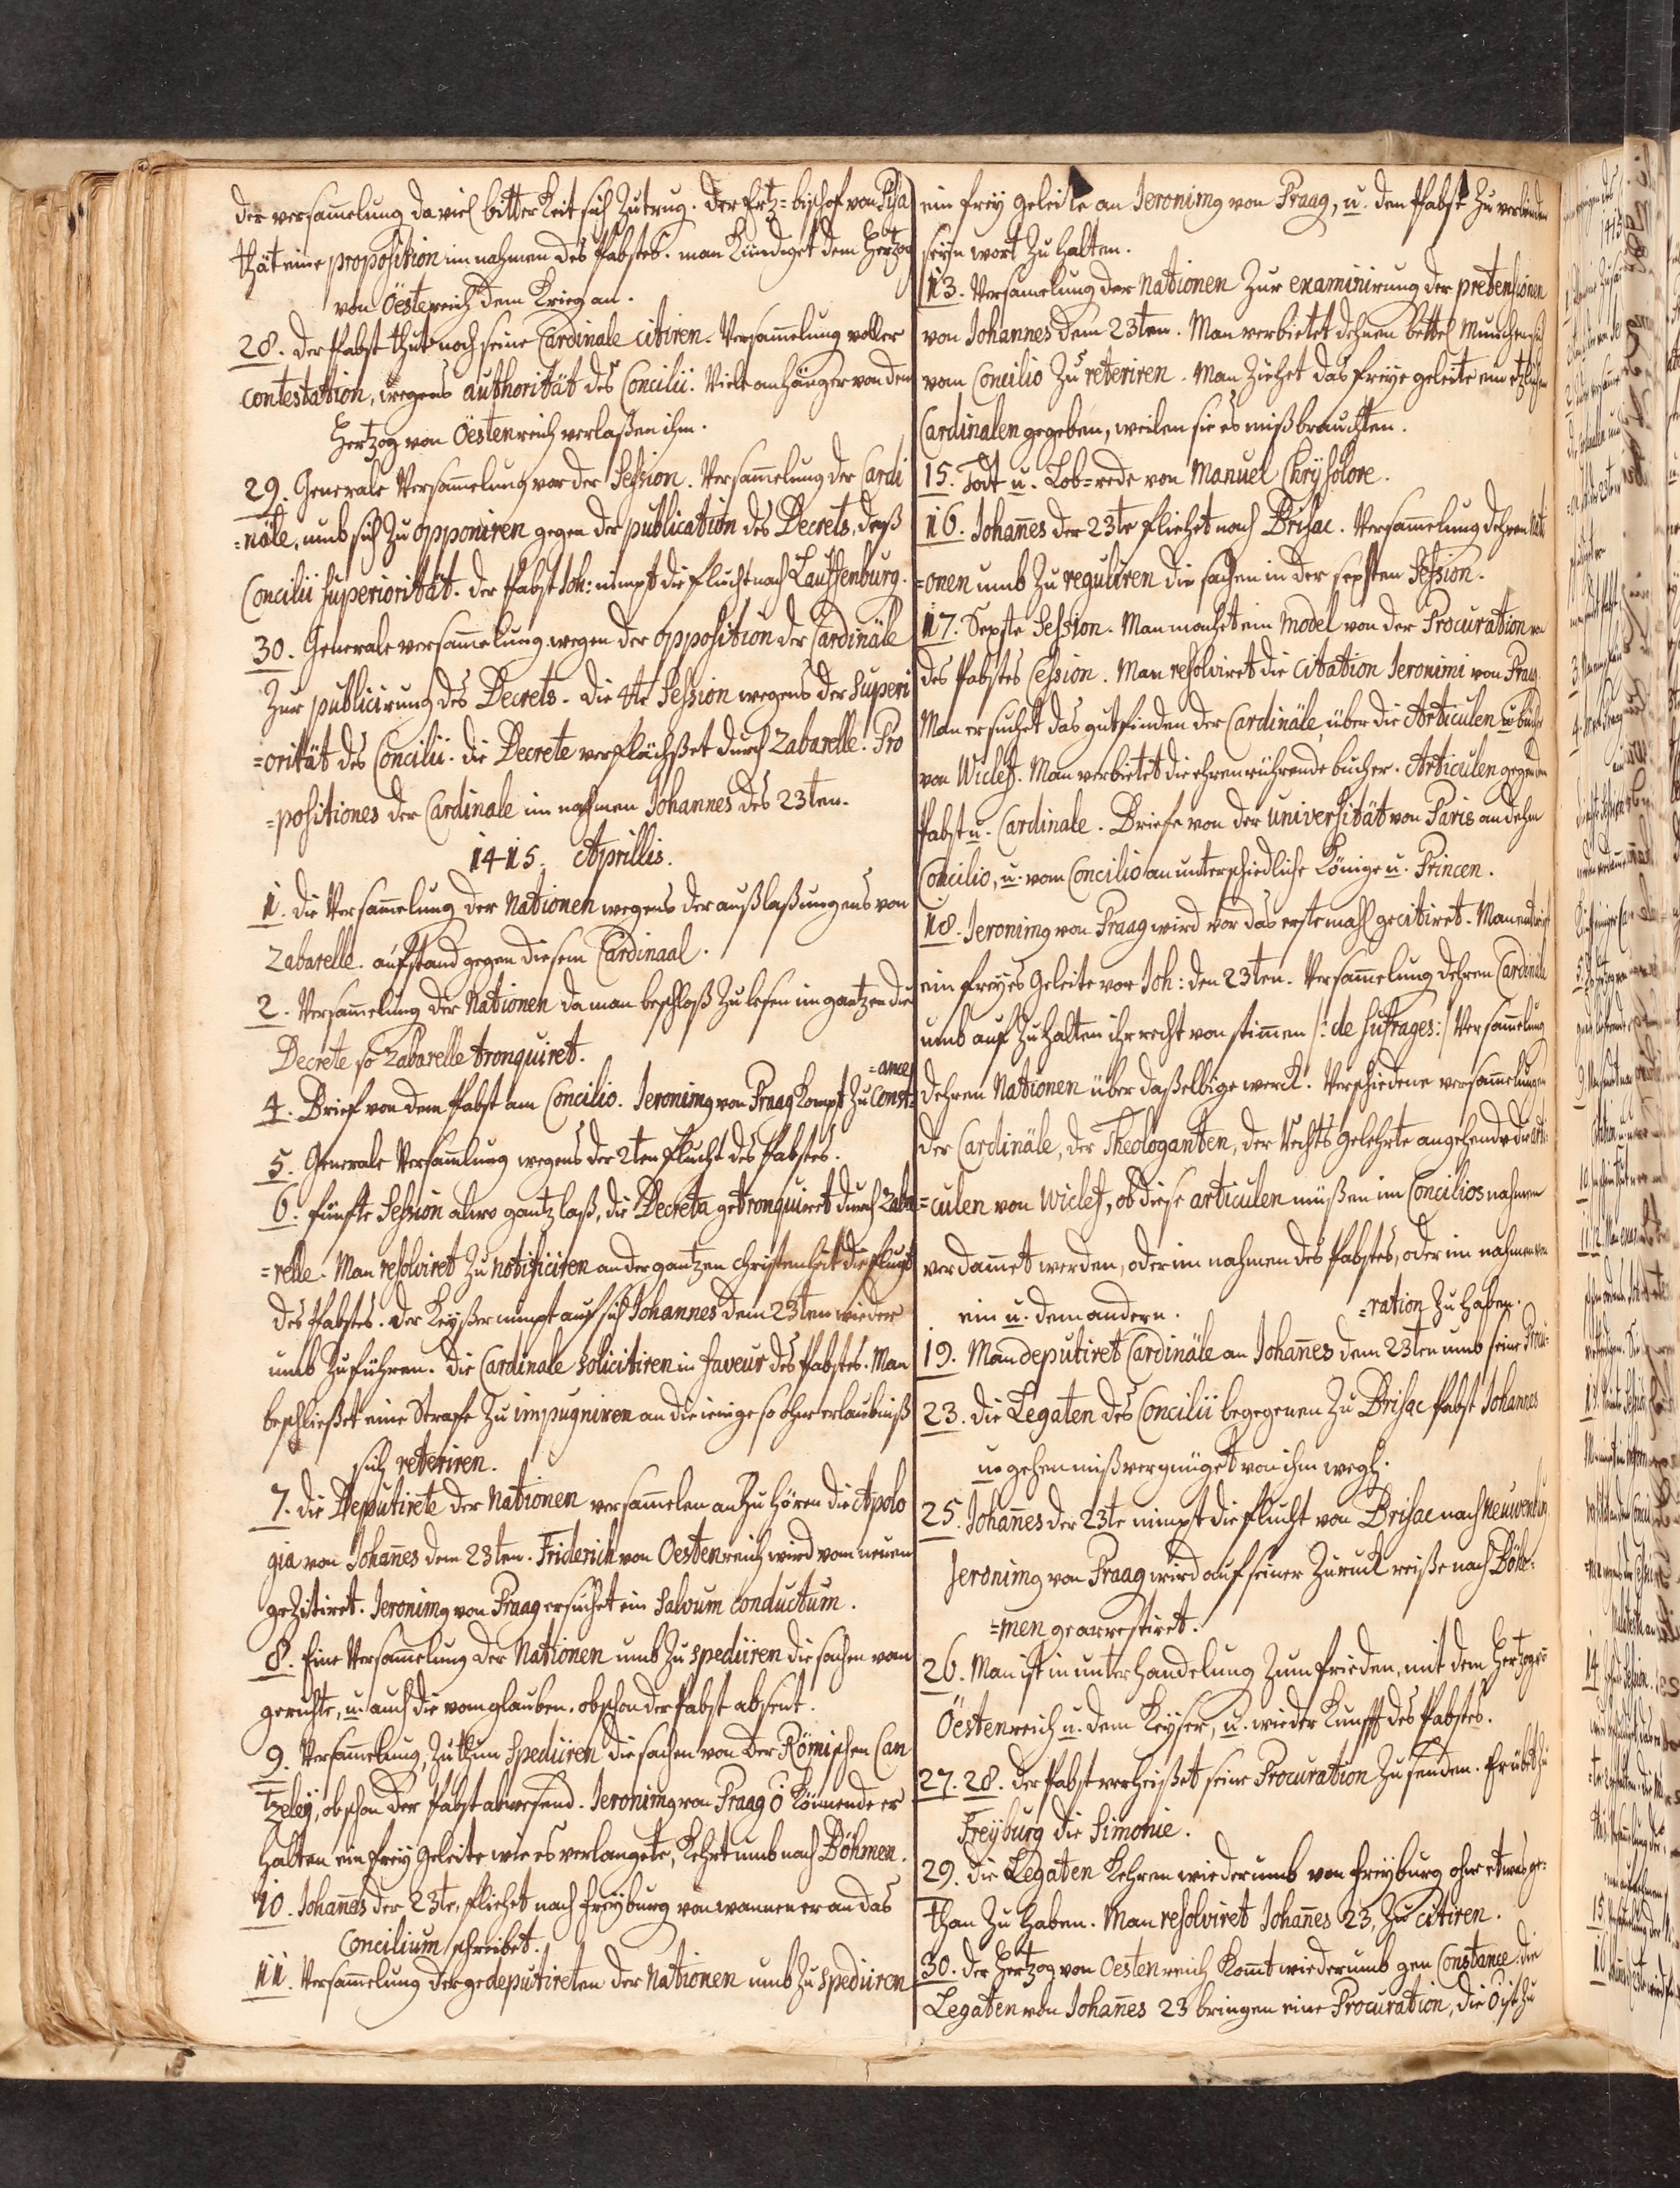 der versam̅elung da viel bitterkeit sich zutrug. der Ertz=bischof von Pisa
thät eine proposition im nahmen des Pabstes. man kündiget dem Hertzog
von Öestereich dem Krieg an.
28. der Pabst thut noch seine Cardinale citiren. Versam̅elung voller
contestation, wegens authorität des Concilii. Viele anhänger von dem
Hertzog von Öestenreich verlaßen ihm.
29. Generale Versam̅elung vor der Session. Versam̅elung der Cardi
=näle, umb sich zu opponiren gegen der publication des Decrets, deß
Concilii superiorität. der Pabst Joh: nimpt die flucht nach Lauffenburg.
30. Generale versam̅elung wegen der opposition der Cardinäle
zur publicirung des Decrets. die 4te Session wegens der Superi
=orität des Concilii. die Decrete verfälschet durch Zabarelle. Pro
=positiones der Cardinale im nahmen Johannes des 23ten.
1415. Aprillis.
1. die Versam̅elung der Nationen wegens der außlaßungens von
Zabarelle. aufstand gegen diesem Cardinaal.
2. Versam̅elung der Nationen da man beschloß zu lesen im gantzen die
Decrete so Zabarelle tronquiret.
=ance
4. Brief von dem Pabst am Concilio. Jeronimg von Praag kompt zu Const=
5. Generale Versam̅lung wegens der 2ten flucht des Pabstes.
6. fünfte Session alwo gantz laß, die Decreta getronquiret durch Zaba
=relle. Man resolviret zu notificiren an der gantzen christenheit die flugt
des Pabstes. der Keyßer nimpt auf sich Johannes dem 23ten wieder
umb zuführen. die Cardinale soliciteren in faveur des Pabstes. Man
beschließet eine Strafe zu impugniren an die ienige so ohne erlaubniß
sich reteriren.
7. die Deputirete der Nationen versam̅elen anzuhören die Apolo
gia von Johan̅es dem 23ten. Friderich von Oestenreich wird vom neuen
gezitiret. Jeronimg von Praag ersuchet ein salvum conductum.
8. Eine Versam̅elung der Nationen umb zu spediiren die sachen vom
gerichte, u. auch die vom glauben. obschon der Pabst absent.
9. Versam̅elung, zu thun spediiren die sachen von der Römischen Can
tzeley, obschon der Pabst abwesend. Jeronimg von Praag ö könnende er
halten ein frey geleite wie es verlangete, kehrt umb nach Böhmen.
10. Johan̅es der 23te, fliehet nach Freyburg von wannen er an das
Concilium schreibet.
11. Versam̅elung der gedeputireten der Nationen umb zu spediiren
ein frey geleite an Jeronimg von Praag, u. dem Pabst zu verbinden
seyn wort zu halten.
13. Versamelung der Nationen zur examinirung der pretensionen
von Johannes dem 23ten. Man verbietet dehnen bettel Munchen sich
vom Concilio zu reteriren. Man ziehet das freye geleite ein etzlichen
Cardinalen gegeben, weilen sie es mißbrauchten.
15. Todt u. Lob=rede von Manuel Chrysolore.
16. Johan̅es der 23te fliehet nach Brisac. Versam̅elung dehren Nati
=onen umb zu reguliren die sachen in der sexsten Session.
17. Sexste Session. Man machet ein model von der Procuration von
des Pabstes Cession. Man resolviret die citation Jeronimi von Praag.
Man ersuchet das gutfinden der Cardinäle, über die Articulen u. bücher
von Wiclef. Man verbietet die ehrenrührende bücher. Articulen gegen dem
Pabst u. Cardinale. Briefe von der universität von Paris an dehm
Concilio, u. vom Concilio an unterschiedliche Könige u. Princen.
18. Jeronimg von Praag wird vor das erste mahl gecitiret. Man
ein freyes Geleite vor Joh: den 23ten. Versam̅elung dehren Cardinale
umb auf zu halten ihr recht von stim̅en /: de sufrages:/ Versam̅elung
dehren Nationen über daßelbige werck. Verschiedene versam̅elungen
der Cardinäle, der Theologanten, der Rechts Gelehrte angehende die arti=
=culen von Wiclef, ob diese articulen müßen im Concilios nahmen
verdam̅et werden, oder im nahmen des Pabstes, oder im nahmen von
ein u. dem andern. =ration zu haben.
19. Man deputiret Cardinäle an Johan̅es dem 23ten umb seine Procu=
23. die Legaten des Concilii begegenen zu Brisac Pabst Johannes
u. gehen mißvergnüget von ihm wegh.
25. Johan̅es der 23te nimpt die flucht von Brisac nach Neuwenburg
Jeronimg von Praag wird auf seiner zuruck reiße nach Böh=
=men gearrestiret.
26. Man ist in unterhandelung zum frieden, mit dem Hertzog v.
Öestenreich u. dem Keyser, u. wieder kunfft des Pabstes.
27. 28. der Pabst verheißet seine Procuration zu senden. Er übet zu
Freyburg die Simonie.
29. die Legaten kehren wiederumb von Freyburg ohne etwas ge=
than zu haben. Man resolviret Johan̅es 23, zu citiren.
30. der Hertzog von Oestenreich kom̅t wiederumb gen Constance. die
Legaten von Johan̅es 23 bringen eine Procuration, die ö ist zu